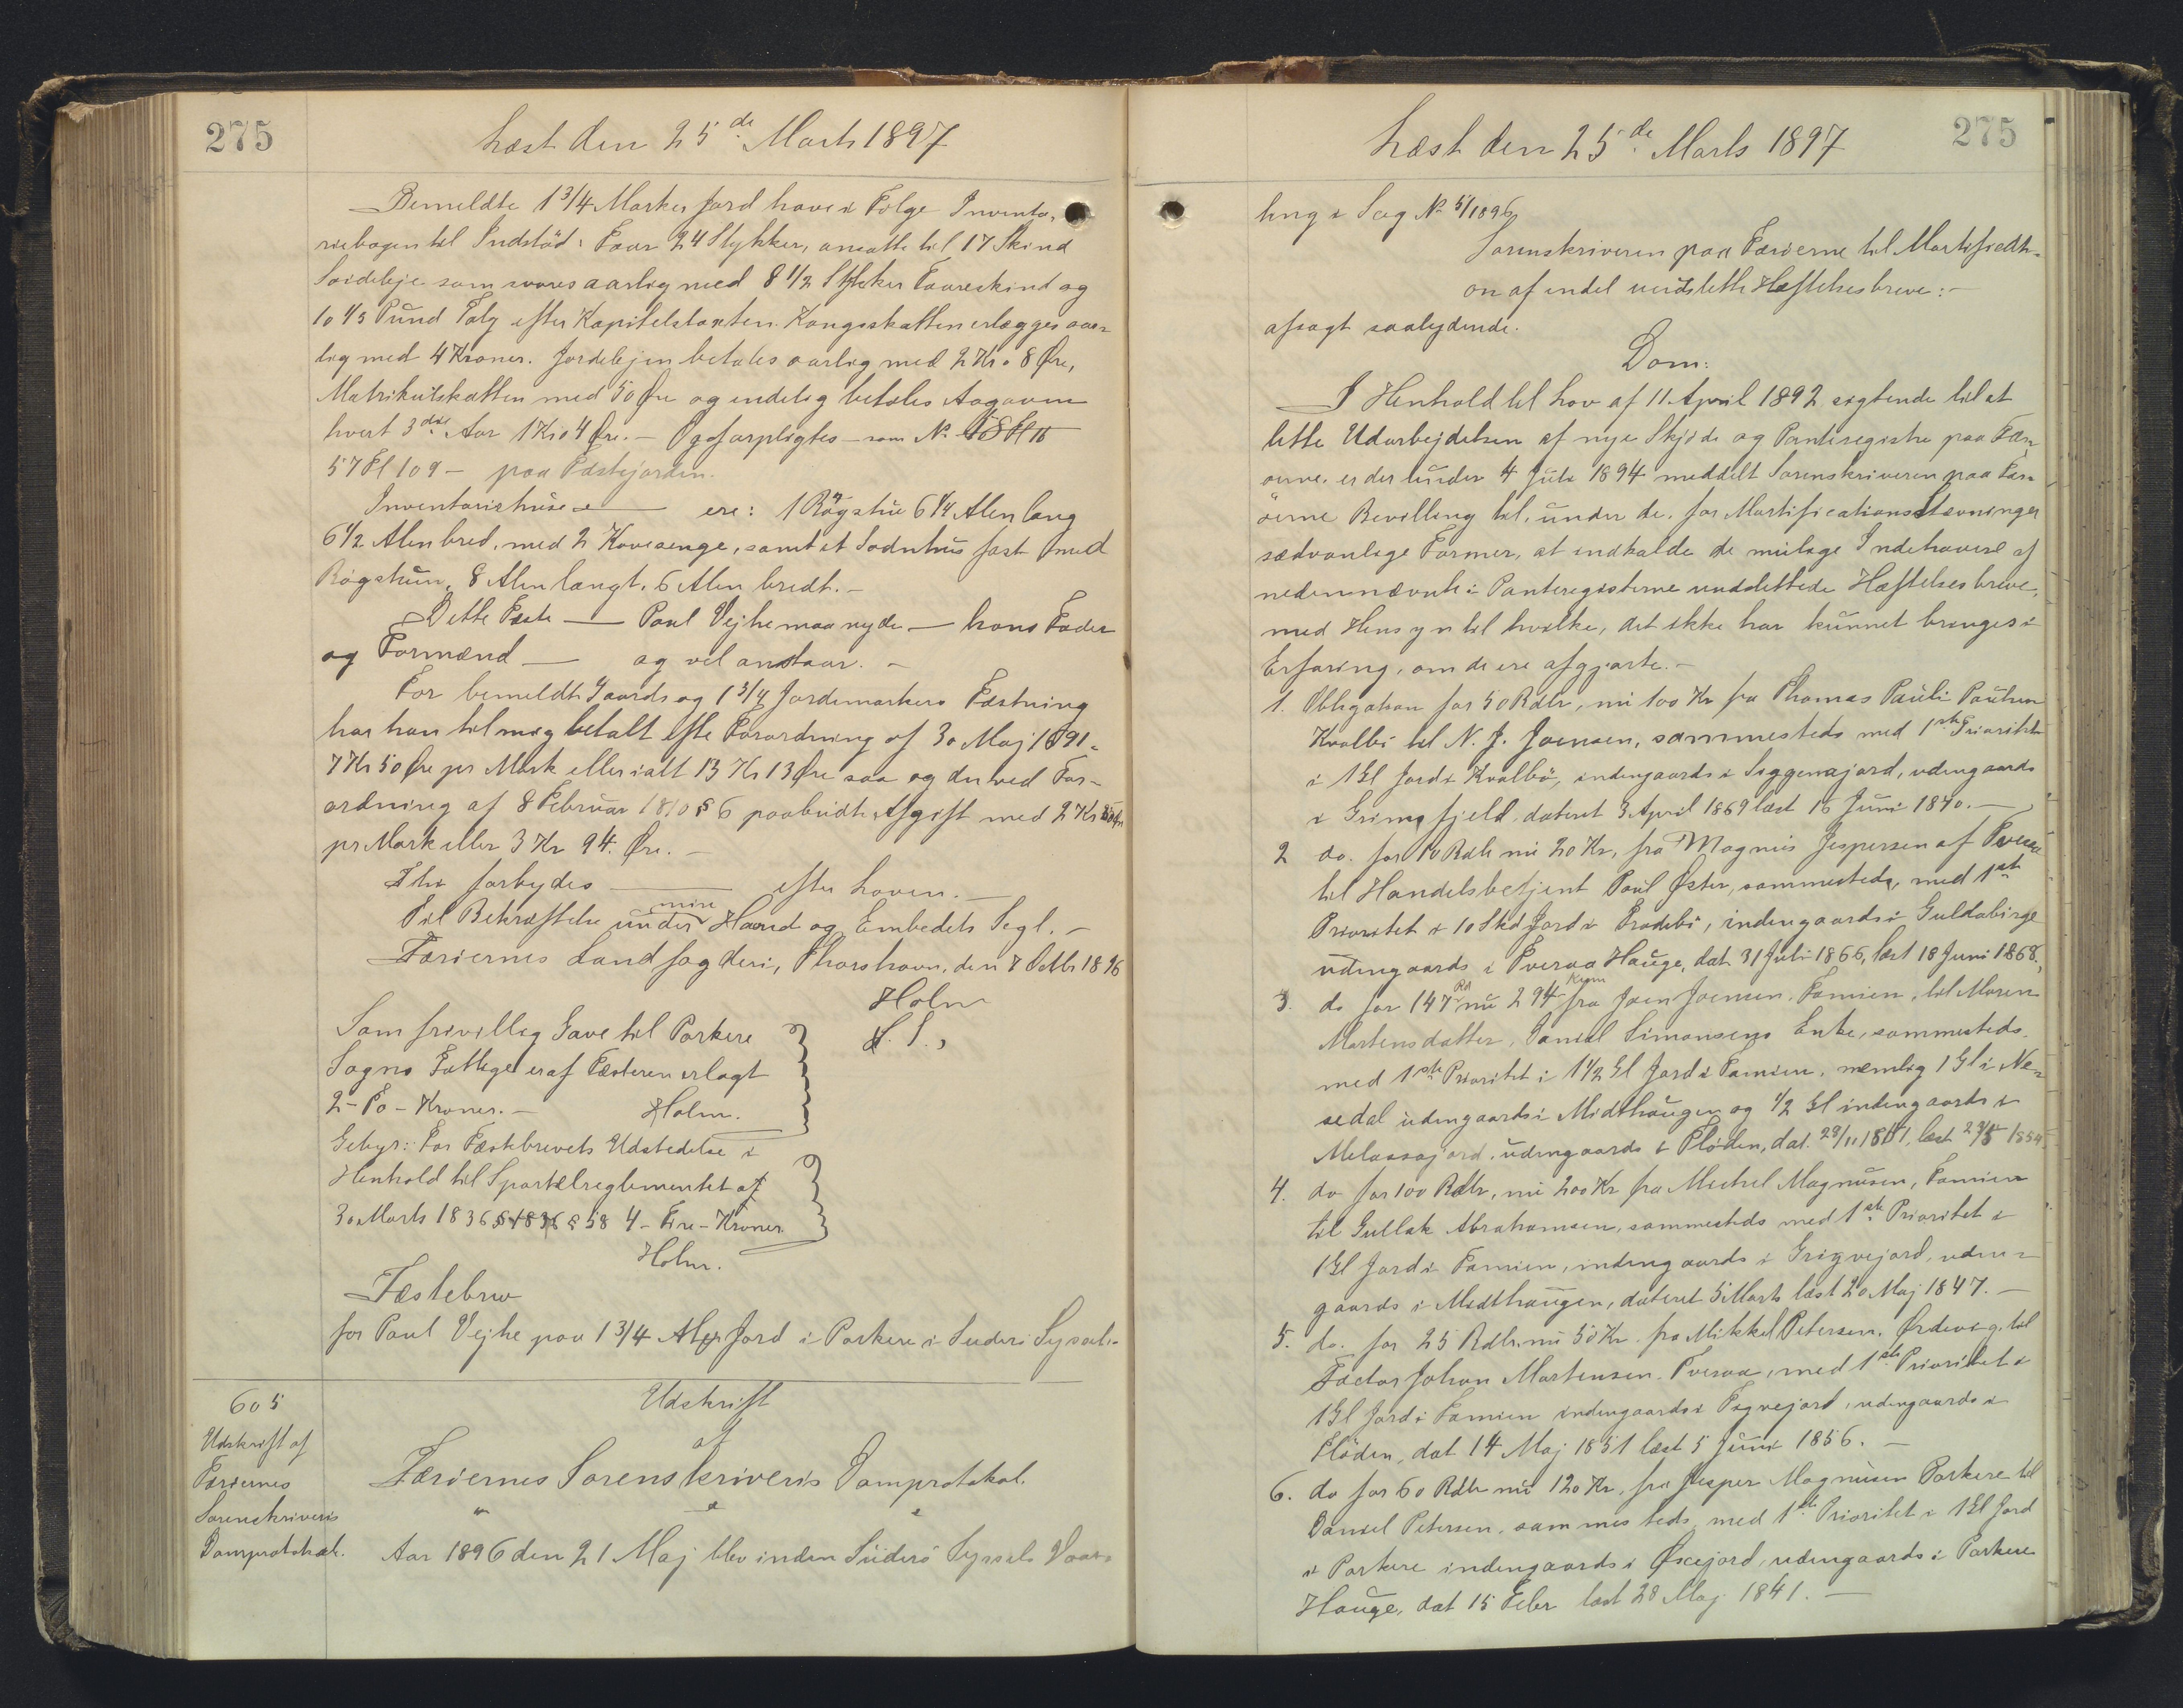 275
Læst den 25de Marts 1897
Bemeldte 1 3/4 Marker Jord have i Følge Invento-
riebogen til Indstød: Faar 24 Stykker, ansatte til 17 Skind
Soideleje som svares aarlig med 8 1/2 Stykker Faareskind og
10 1/5 Pund Talg efter Kapitelstaxten. Kongsskatten erlægges aar-
lig med 4 Kroner. Jordelejen betales aarlig med 2 Kr. 8 Øre,
Matrikulskatten med 50 Øre og endelig betales Aagaven
hvert 3die Aar 1 Kr 04 Øre. – Ogsforpligtes – som No
57 Fl 109 – paa Fæstejorden.
Inventariehuse ere: 1 Røgstue 6 1/4 Alen lang
6 1/2 Alen bred, med 2 Kovesenge, samt et Sodnhus fast med
Røgstuen, 8 Alen langt, 6 Alen bredt. –
Dette Fæste — Poul Vejhe maa nyde — hans Fader
og Formænd — og vel anstaar. –
For bemeldte Gaards og 1 3/4 Jordemarkers Fæstning
har han til mig betalt efter Forordning af 30 Maj 1891.
7 Kr 50 Øre pr Mark eller ialt 13 Kr 13 Øre saa og den ved For-
ordning af 8 Februar 1810 § 6 paabudte Afgift med 2 Kr
pr Mark eller 3 Kr 94. Øre. –
Thi forbydes — efter Loven. –
Til Bekræftelse under min Haand og Embedets Segl. –
Færøernes Landfogderi, Thorshavn, den 7 Octbr 1896
Holm
L. S.,
Som frivillig Gave til Porkere
Sogns Fattige er af Fæsteren erlagt
2 – To – Kroner. –
Holm.
Gebyr: For Fæstebrevets Udstedelse i
Henhold til Sportelreglementet af
30 Marts 1836 § 58 4 – Fire – Kroner
Holm.
Fæstebrev
for Poul Vejhe paa 1 3/4 Mrk Jord i Porkere i Suderø Syssel. –
605
Udskrift af
Færøernes
Sorenskriveris
Domprotokol.
Udskrift
af
Færøernes Sorenskriveris Domprotokol.
Aar 1896 den 21 Maj blev inden Suderø Syssels Vaar-
275
Læst den 25de Marts 1897
ting i Sag No 5/1896
Sorenskriveren paa Færøerne til Mortificati-
on af endel uudslettede Hæftelsesbreve: –
afsagt saalydende.
Dom:
I Henhold til Lov af 11 April 1892 sigtende til at
lette Udarbejdelsen af nye Skjøde og Panteregistre paa Fær-
øerne, er der under 4 Juli 1894 meddelt Sorenskriveren paa Fær-
øerne Bevilling til, under de, for Mortificationsstævninger
sædvanlige Former, at indkalde de mulige Indehavere af
nedennævnte i Panteregisterne uudslettede Hæftelsesbreve,
med Hensyn til hvilke, det ikke har kunnet bringes i
Erfaring, om de ere afgjorte. –
1. Obligation for 50 Rdlr, nu 100 Kr fra Thomas Pauli Paulsen
Kvalbø til N. J. Joensen, sammesteds med 1ste Prioritet
i 1 Gl Jord i Kvalbø, indengaards i Siggenajord, udengaards
i Grimsfjeld, dateret 3 April 1869 læst 16 Juni 1870. —
2 do. for 10 Rdlr nu 20 Kr, fra Magnus Jespersen af Tveraa
til Handelsbetjent Poul Øster, sammesteds, med 1ste
Prioritet i 10 Skd Jord i Frodebø, indengaards i Guldabirge
udengaards i Tveraa Hauge, dat 31 Juli 1866, læst 18 Juni 1868.,
3. do for 147 Rd nu 294 Kron fra Joen Joensen, Famien, til Maren
Mortensdatter, Daniel Simonsens Enke, sammesteds.
med 1ste Prioritet i 1 1/2 Gl Jord i Famien, nemlig 1 Gl i Ne-
sedal udengaards i Midthaugen og 1/2 Gl indengaards i
Melassajord, udengaards i Fløden, dat. 28/11 1851, læst 1854.
4. do for 100 Rdlr, nu 200 Kr fra Michel Magnusen, Famien
til Gullak Abrahamsen, sammesteds med 1ste Prioritet i
1 Gl Jord i Famien, indengaards i Grigvejord, uden-
gaards i Midthaugen, dateret 5 Marts læst 20 Maj 1847. –
5. do. for 25 Rdlr. nu 50 Kr. fra Mikkel Petersen. Ørdevig. til
Factor Johan Mortensen. Tveraa, med 1ste Prioritet i
1 Gl Jord i Famien indengaards i Tigvejord, udengaards i
Fløden, dat 14 Maj 1851 læst 5 Juni 1856. –
6. do for 60 Rdlr nu 120 Kr, fra Jesper Magnusen Porkere til
Daniel Petersen, sammesteds, med 1ste Prioritet i 1 Gl Jord
i Porkere indengaards i Øxejord, udengaards i Porkere
Hauge, dat 15 Febr læst 28 Maj 1841. —